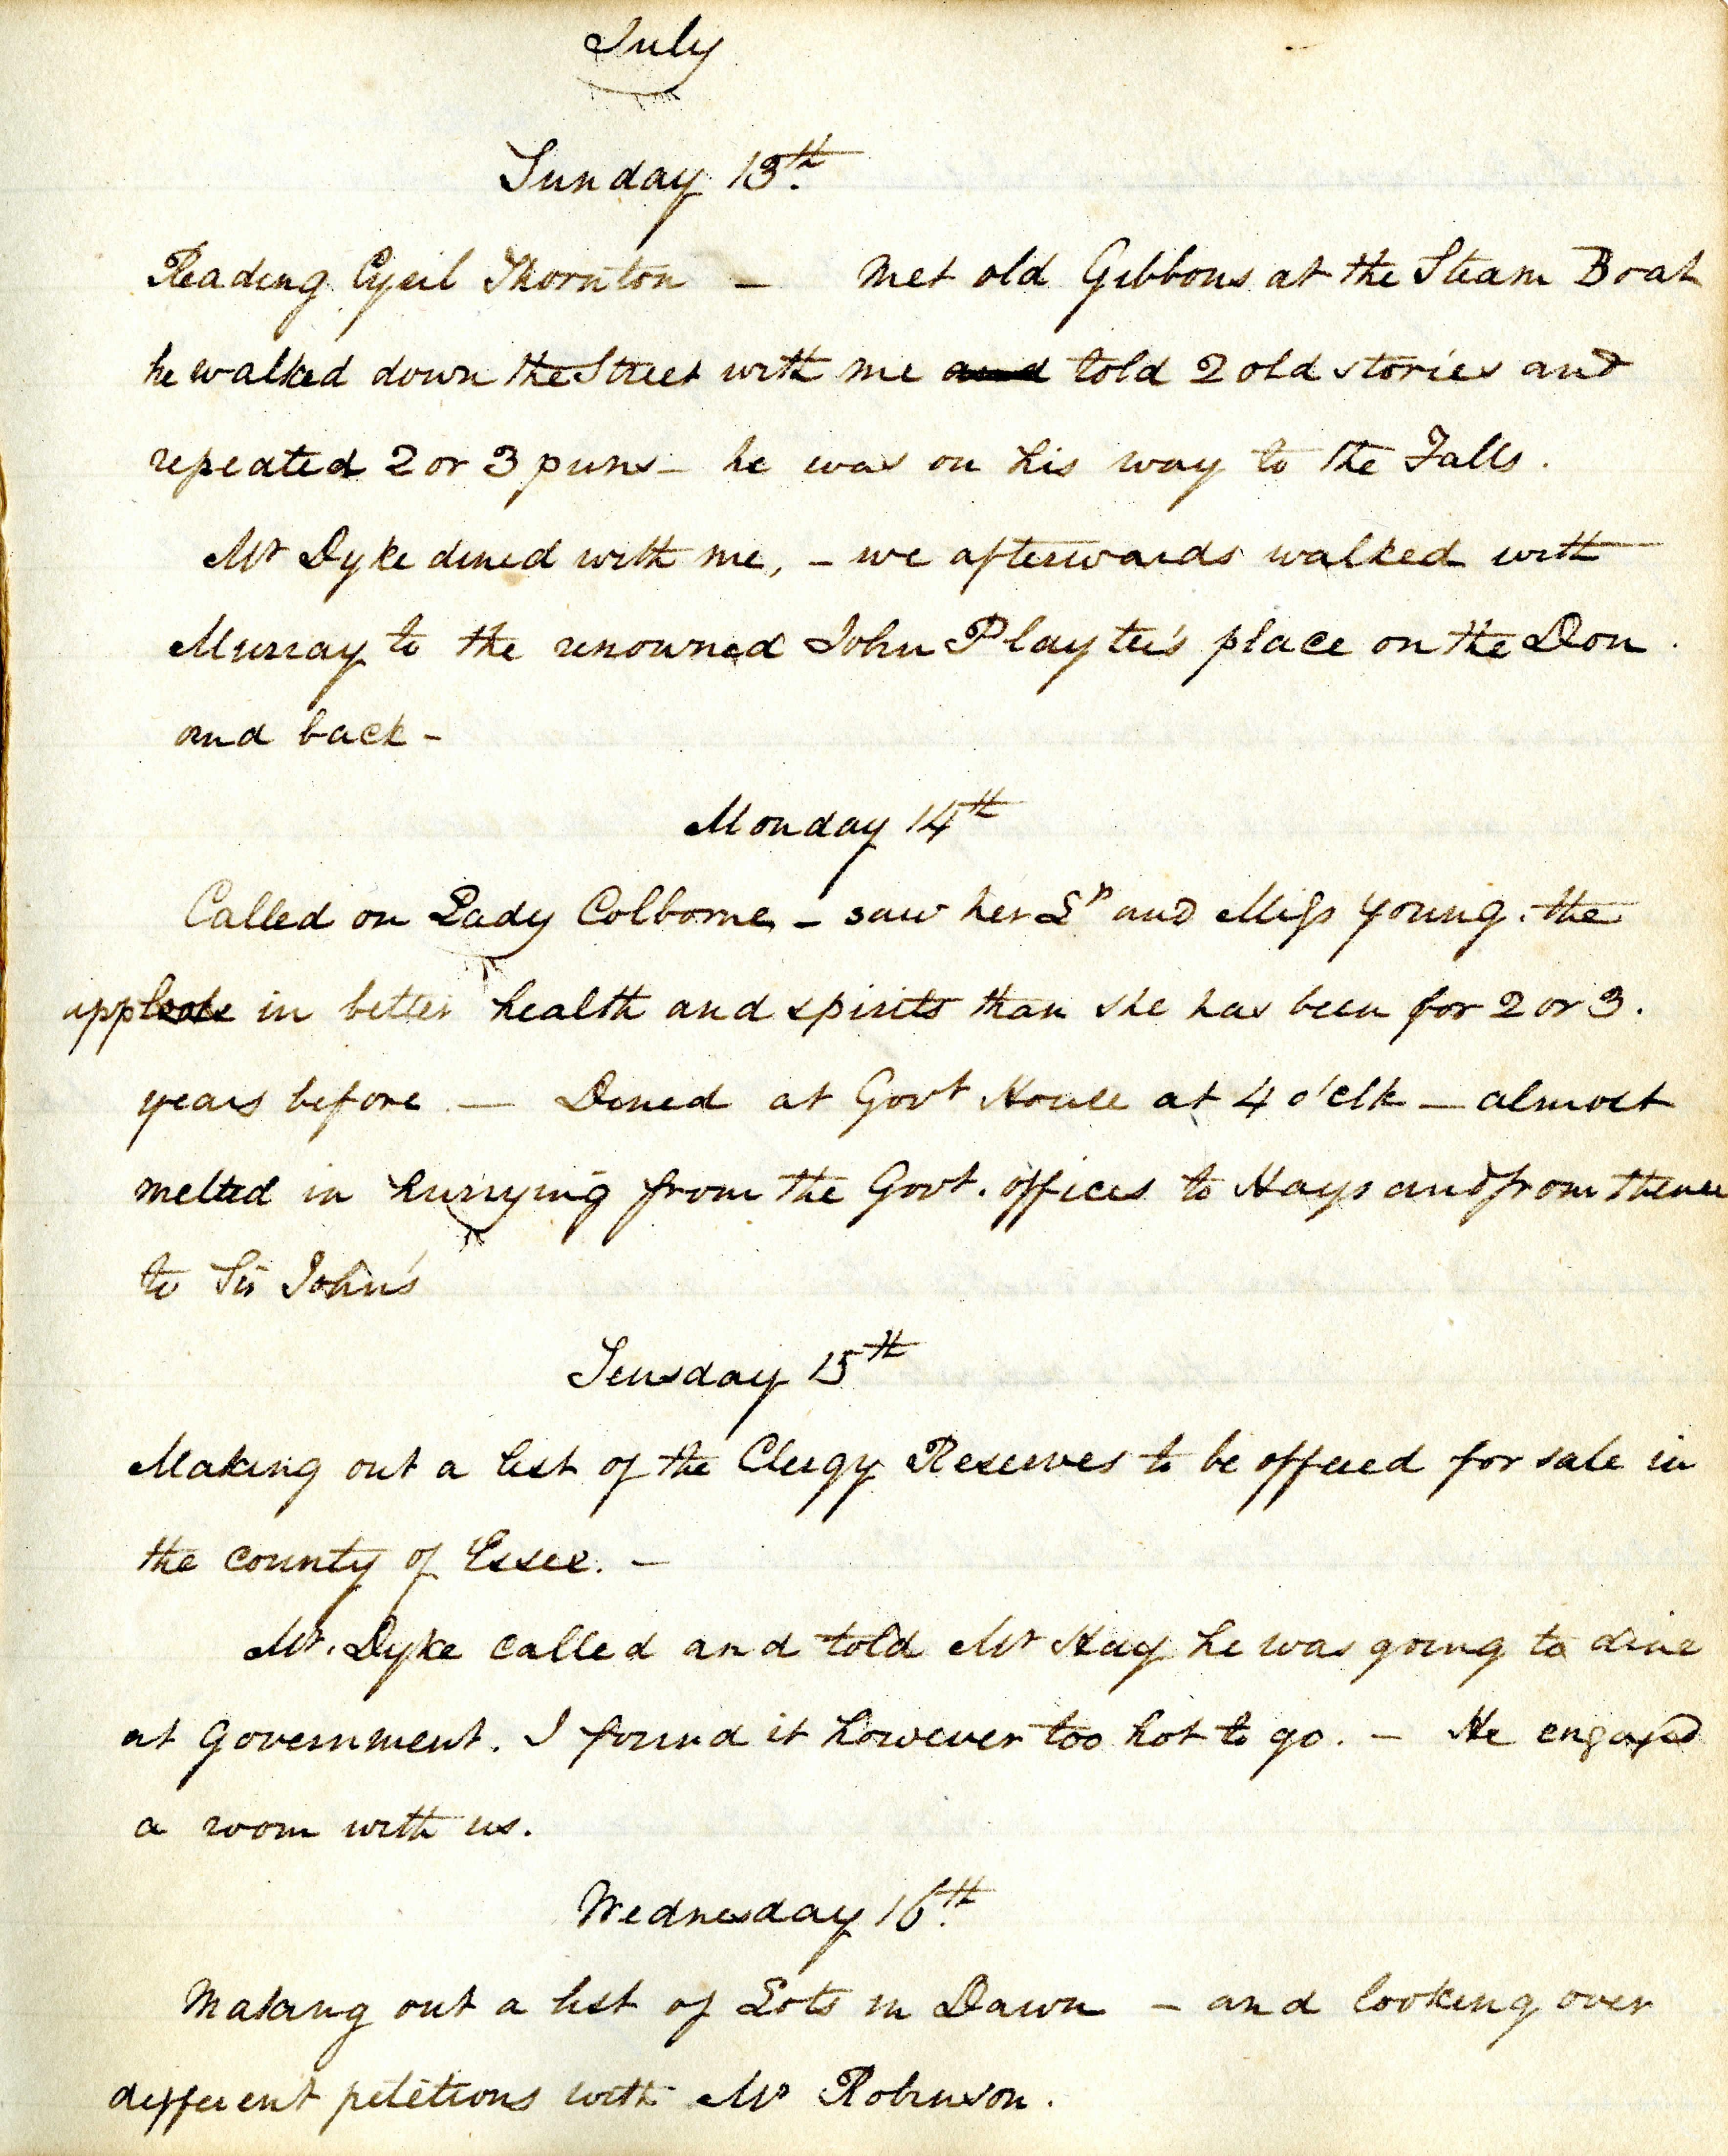 July
Sunday 13th
Reading Cyril Thornton — Met old Gibbons at the Steam Boat
he walked down the Street with me and told 2 old stories and
repeated 2 or 3 puns – he was on his way to the Falls.
Mr Dyke dined with me, – we afterwards walked with
Murray to the renowned John Playter's place on the Don.
and back –
Monday 14th
Called on Lady Colborne – saw her Lp and Miss Young. the
in better health and spirits than she has been for 2 or 3.
years before — Dined at Govt House at 4 o'clk — almost
melted in hurrying from the Govt. offices to Hays and from thence
to Sir John's
Teusday 15th
Making out a list of the Clergy Reserves to be offered for sale in
the county of Essex. —
Mr. Dyke called and told Mr Hay he was going to dine
at Government. I found it however too hot to go. – He engaged
a room with us.
Wednesday 16th
Making out a list of Lots in Dawn – and looking over
different petitions with Mr Robinson.